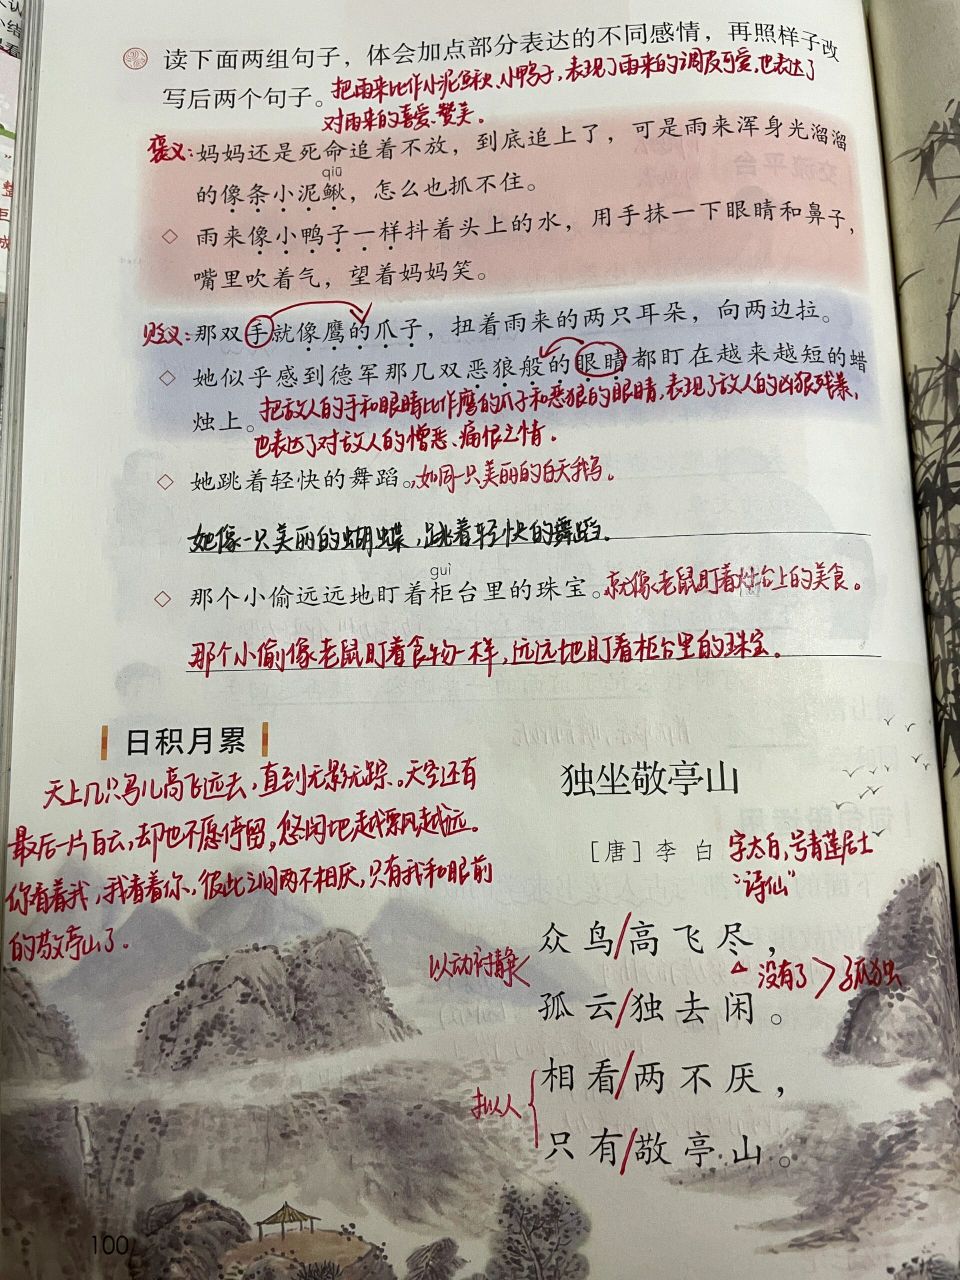 读下面两组句子，体会加点部分表达的不同感情，再照样子改
写后两个句子。把雨来比作小泥鳅、小鸭子，表现了雨来的调皮可爱，也表达了
对雨来的喜爱、赞美。
褒义：妈妈还是死命追着不放，到底追上了，可是雨来浑身光溜溜
qiū
的像条小泥鳅，怎么也抓不住。
雨来像小鸭子一样抖着头上的水，用手抹一下眼睛和鼻子，
嘴里吹着气，望着妈妈笑。
贬义：那双手就像鹰的爪子，扭着雨来的两只耳朵，向两边拉。
她似乎感到德军那几双恶狼般的眼睛都盯在越来越短的蜡
烛上。把敌人的手和眼睛比作鹰的爪子和恶狼的眼睛，表现了敌人的凶狠残暴，
也表达了对敌人的憎恶、痛恨之情。
她跳着轻快的舞蹈。，如同一只美丽的白天鹅。
她像一只美丽的蝴蝶，跳着轻快的舞蹈。
guì
那个小偷远远地盯着柜台里的珠宝。就像老鼠盯着灶台上的美食。
那个小偷像老鼠盯着食物一样，远远地盯着柜台里的珠宝。
日积月累
天上几只鸟儿高飞远去，直到无影无踪。天空还有
最后一片白云，却也不愿停留，悠闲地越飘越远。
你看着我，我看着你，彼此之间两不相厌，只有我和眼前
的敬亭山了。
独坐敬亭山
［唐］李白 字太白，号青莲居士
“诗仙”
众鸟/高飞尽，
以动衬静 没有了 孤独
孤云/独去闲。
相看/两不厌，
拟人
只有/敬亭山。
100